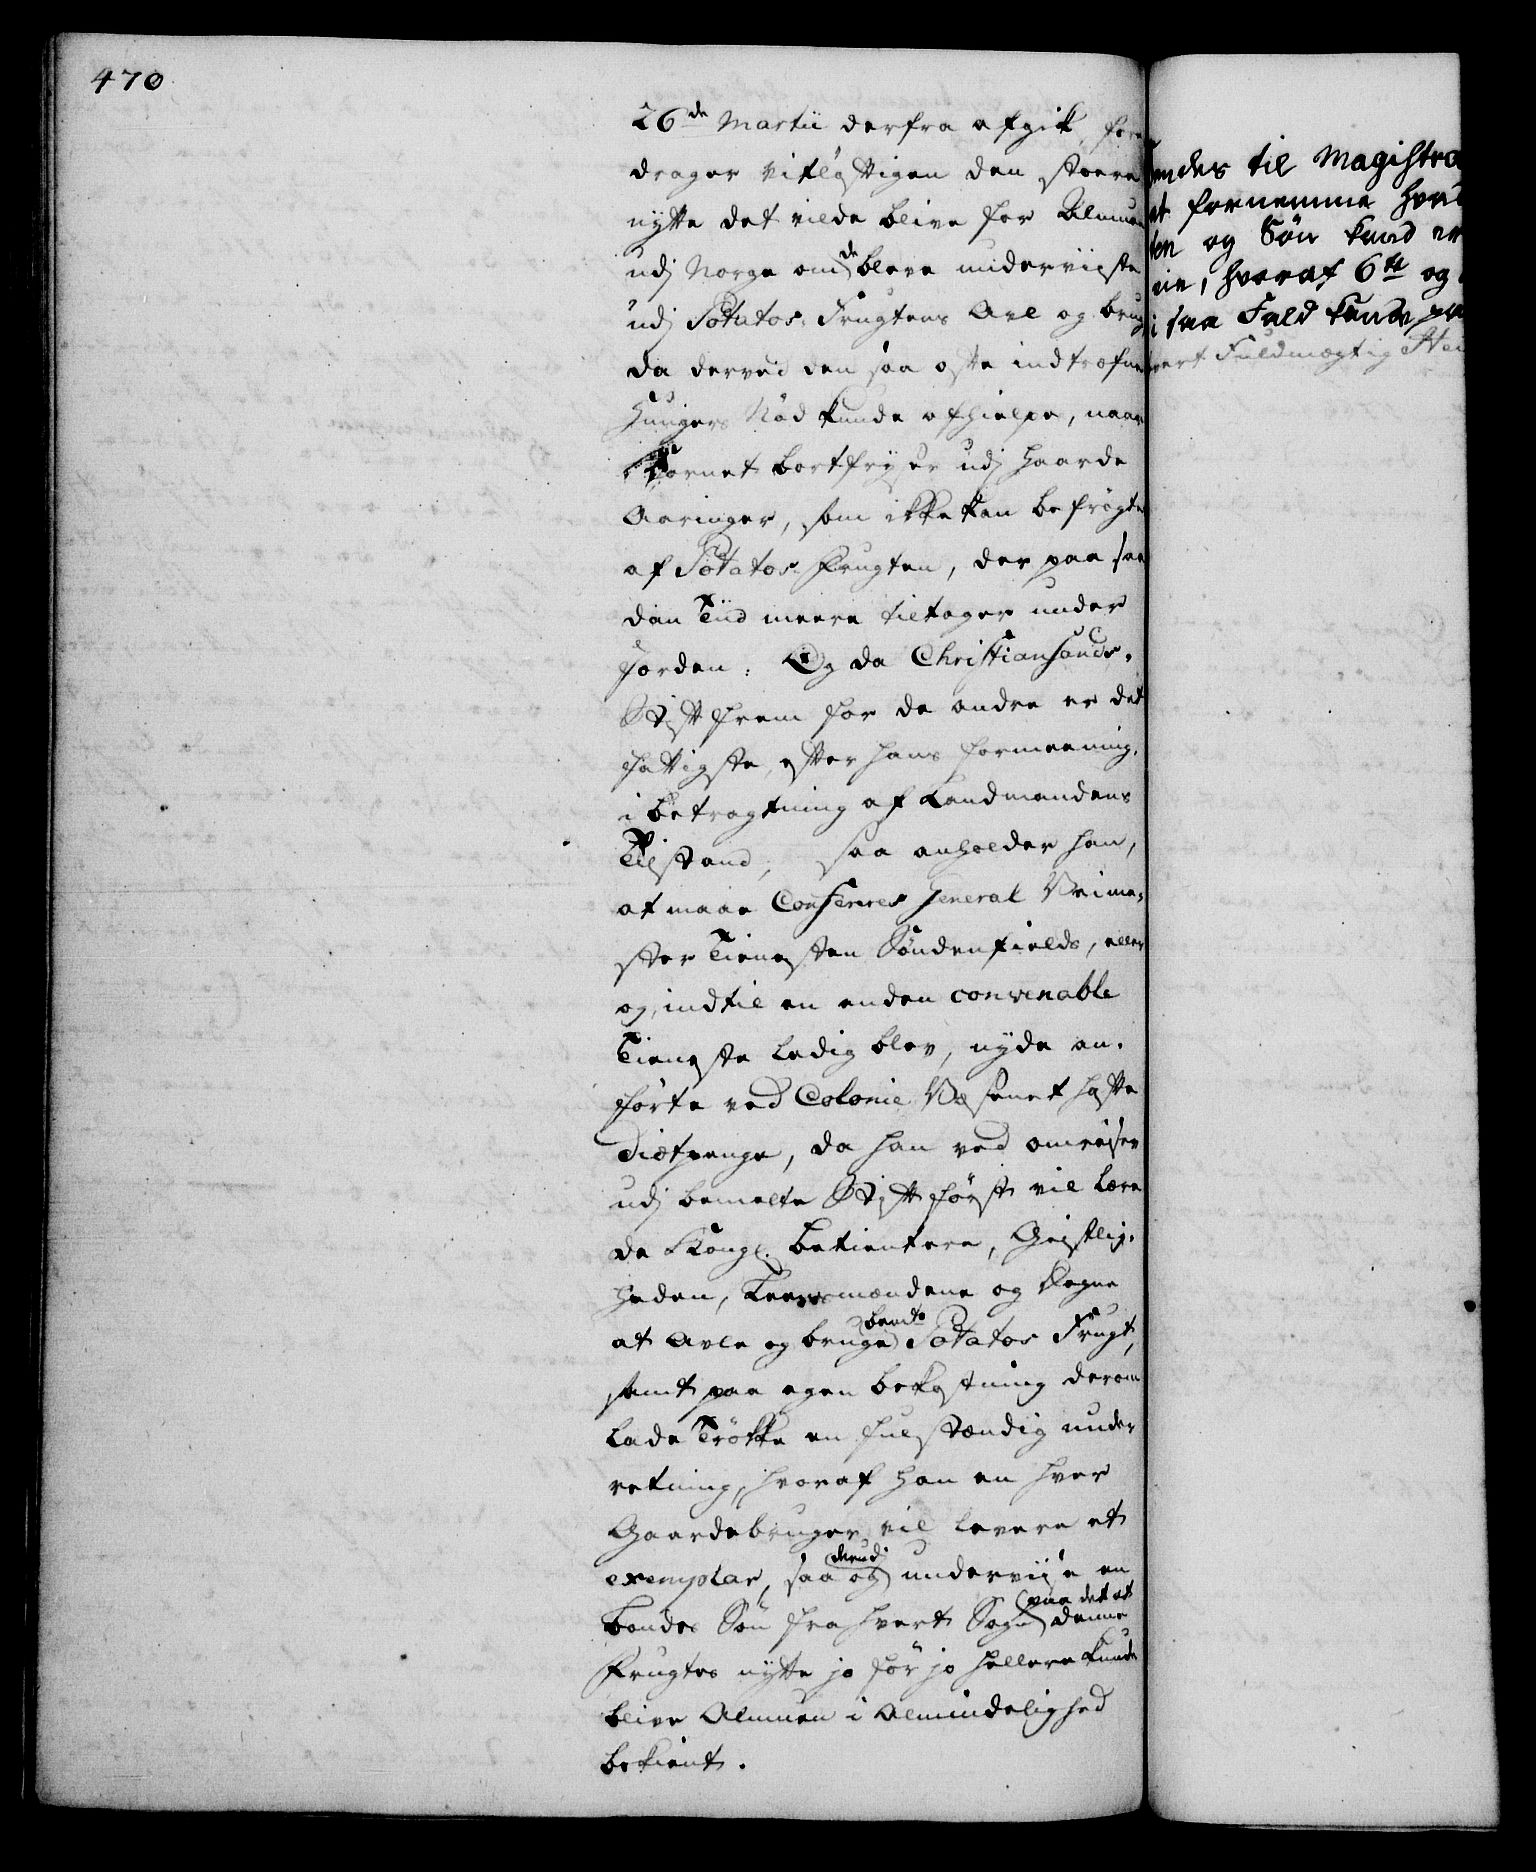 470
26de Martii derfra afgik, fore
drager vitløftigen den stoere
nytte det vilde blive for Almuen
udj Norge om de bleve underviiste
udj Potatos-Frugtens Avl og brug
da derved den saa ofte indtrefne
Hungers Nød kunde afhielpe, naar
Kornet bortfryser udj haarde
Aaringer, som ikke kan befrøgtes
af Potatos Frugten, der paa saa
dan Tiid meere tiltager under
Jorden. Og da Christiansands-
Stift frem for de andre er det
fattigste, efter hans formeening,
i betragtning af Landmandens
Tilstand, saa anholder han,
at maae Confereres General Veime-
ster Tienesten Søndenfields, eller
og, indtil en anden convenable
Tieneste ledig blev, nyde an-
førte ved Colonie Væsenet hafte
Diætpenge, da han ved omreiser
udj bemelte Stift først vil lære
de Kongl. betientere, Geistlig-
heden, Leensmændene og Degne
at avle og bruge bemte Potatos Frugt,
samt paa egen bekostning derom
lade Trøkke en fulstændig under
retning, hvoraf han en hver
Gaardebruger vil levere et
exemplar, saa og derudj underviise en
bondes Søn fra hvert Sogn paa det at denne
Frugtes nytte jo før jo hellere kunde
blive Almuen i Almindelighed
bekient.
sendes til Magistra
at fornemme hvad
den og Søn kand er
hvoraf 6te og
i saa Fald kunde
Fuldmægtig